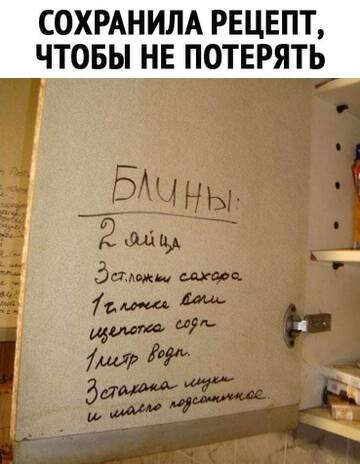 СОХРАНИЛА РЕЦЕПТ,
ЧТОБЫ НЕ ПОТЕРЯТЬ
БЛИНЫ:
2 яйца
3 ст.ложки сахара
1 ч.ложка соли
щепотка соды
1 литр воды.
3 стакана муки
и масло подсолнечное.